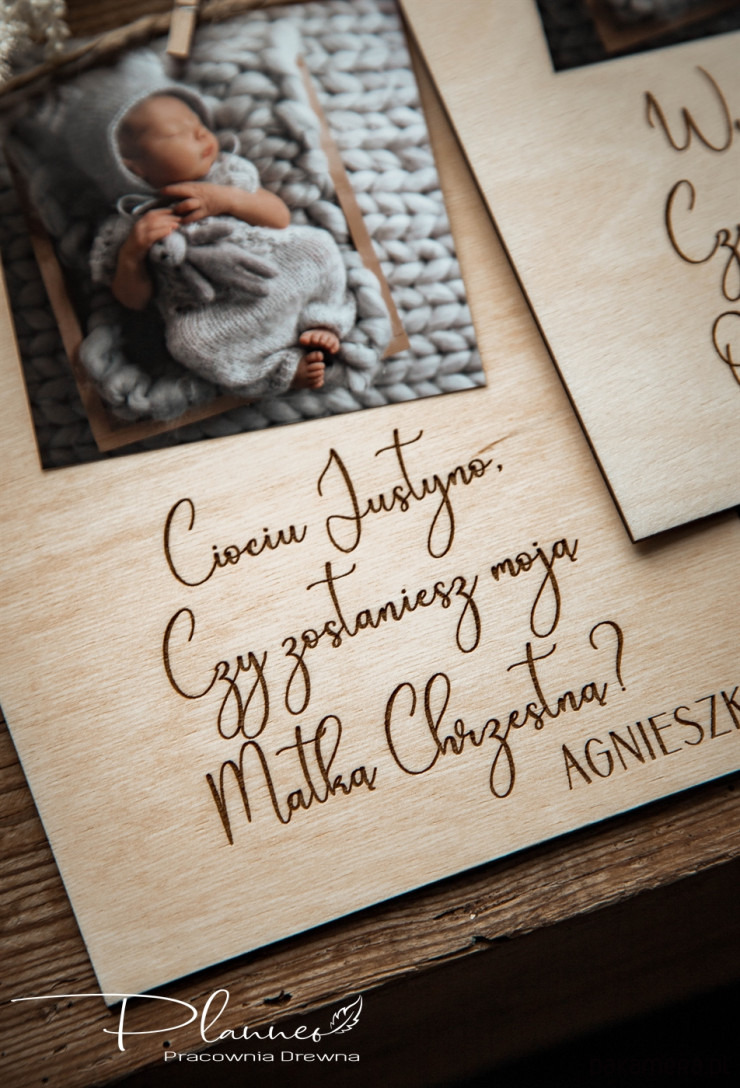 Ciociu Justyno,
Czy zostaniesz moją
Matką Chrzestną?
AGNIESZK
W
Cz
Planneo
Pracownia Drewna